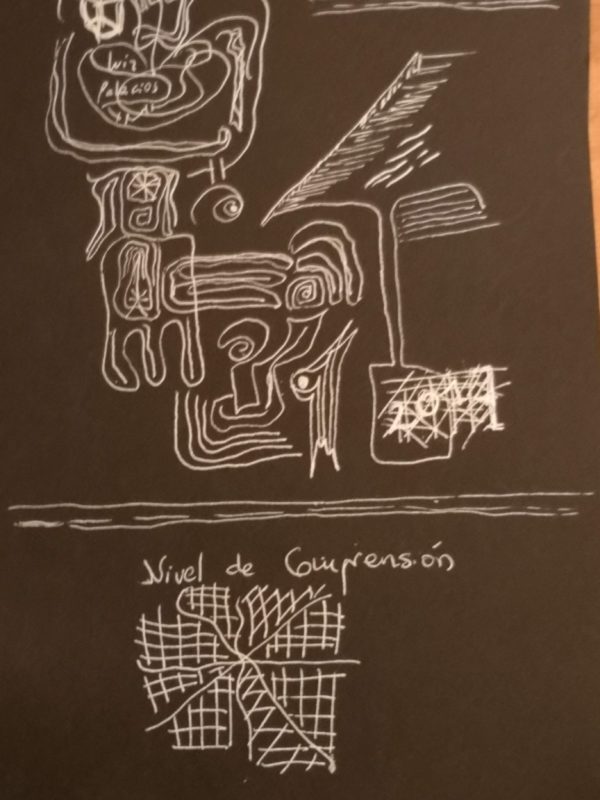 Luiz
Palacios
Nivel de Comprensión